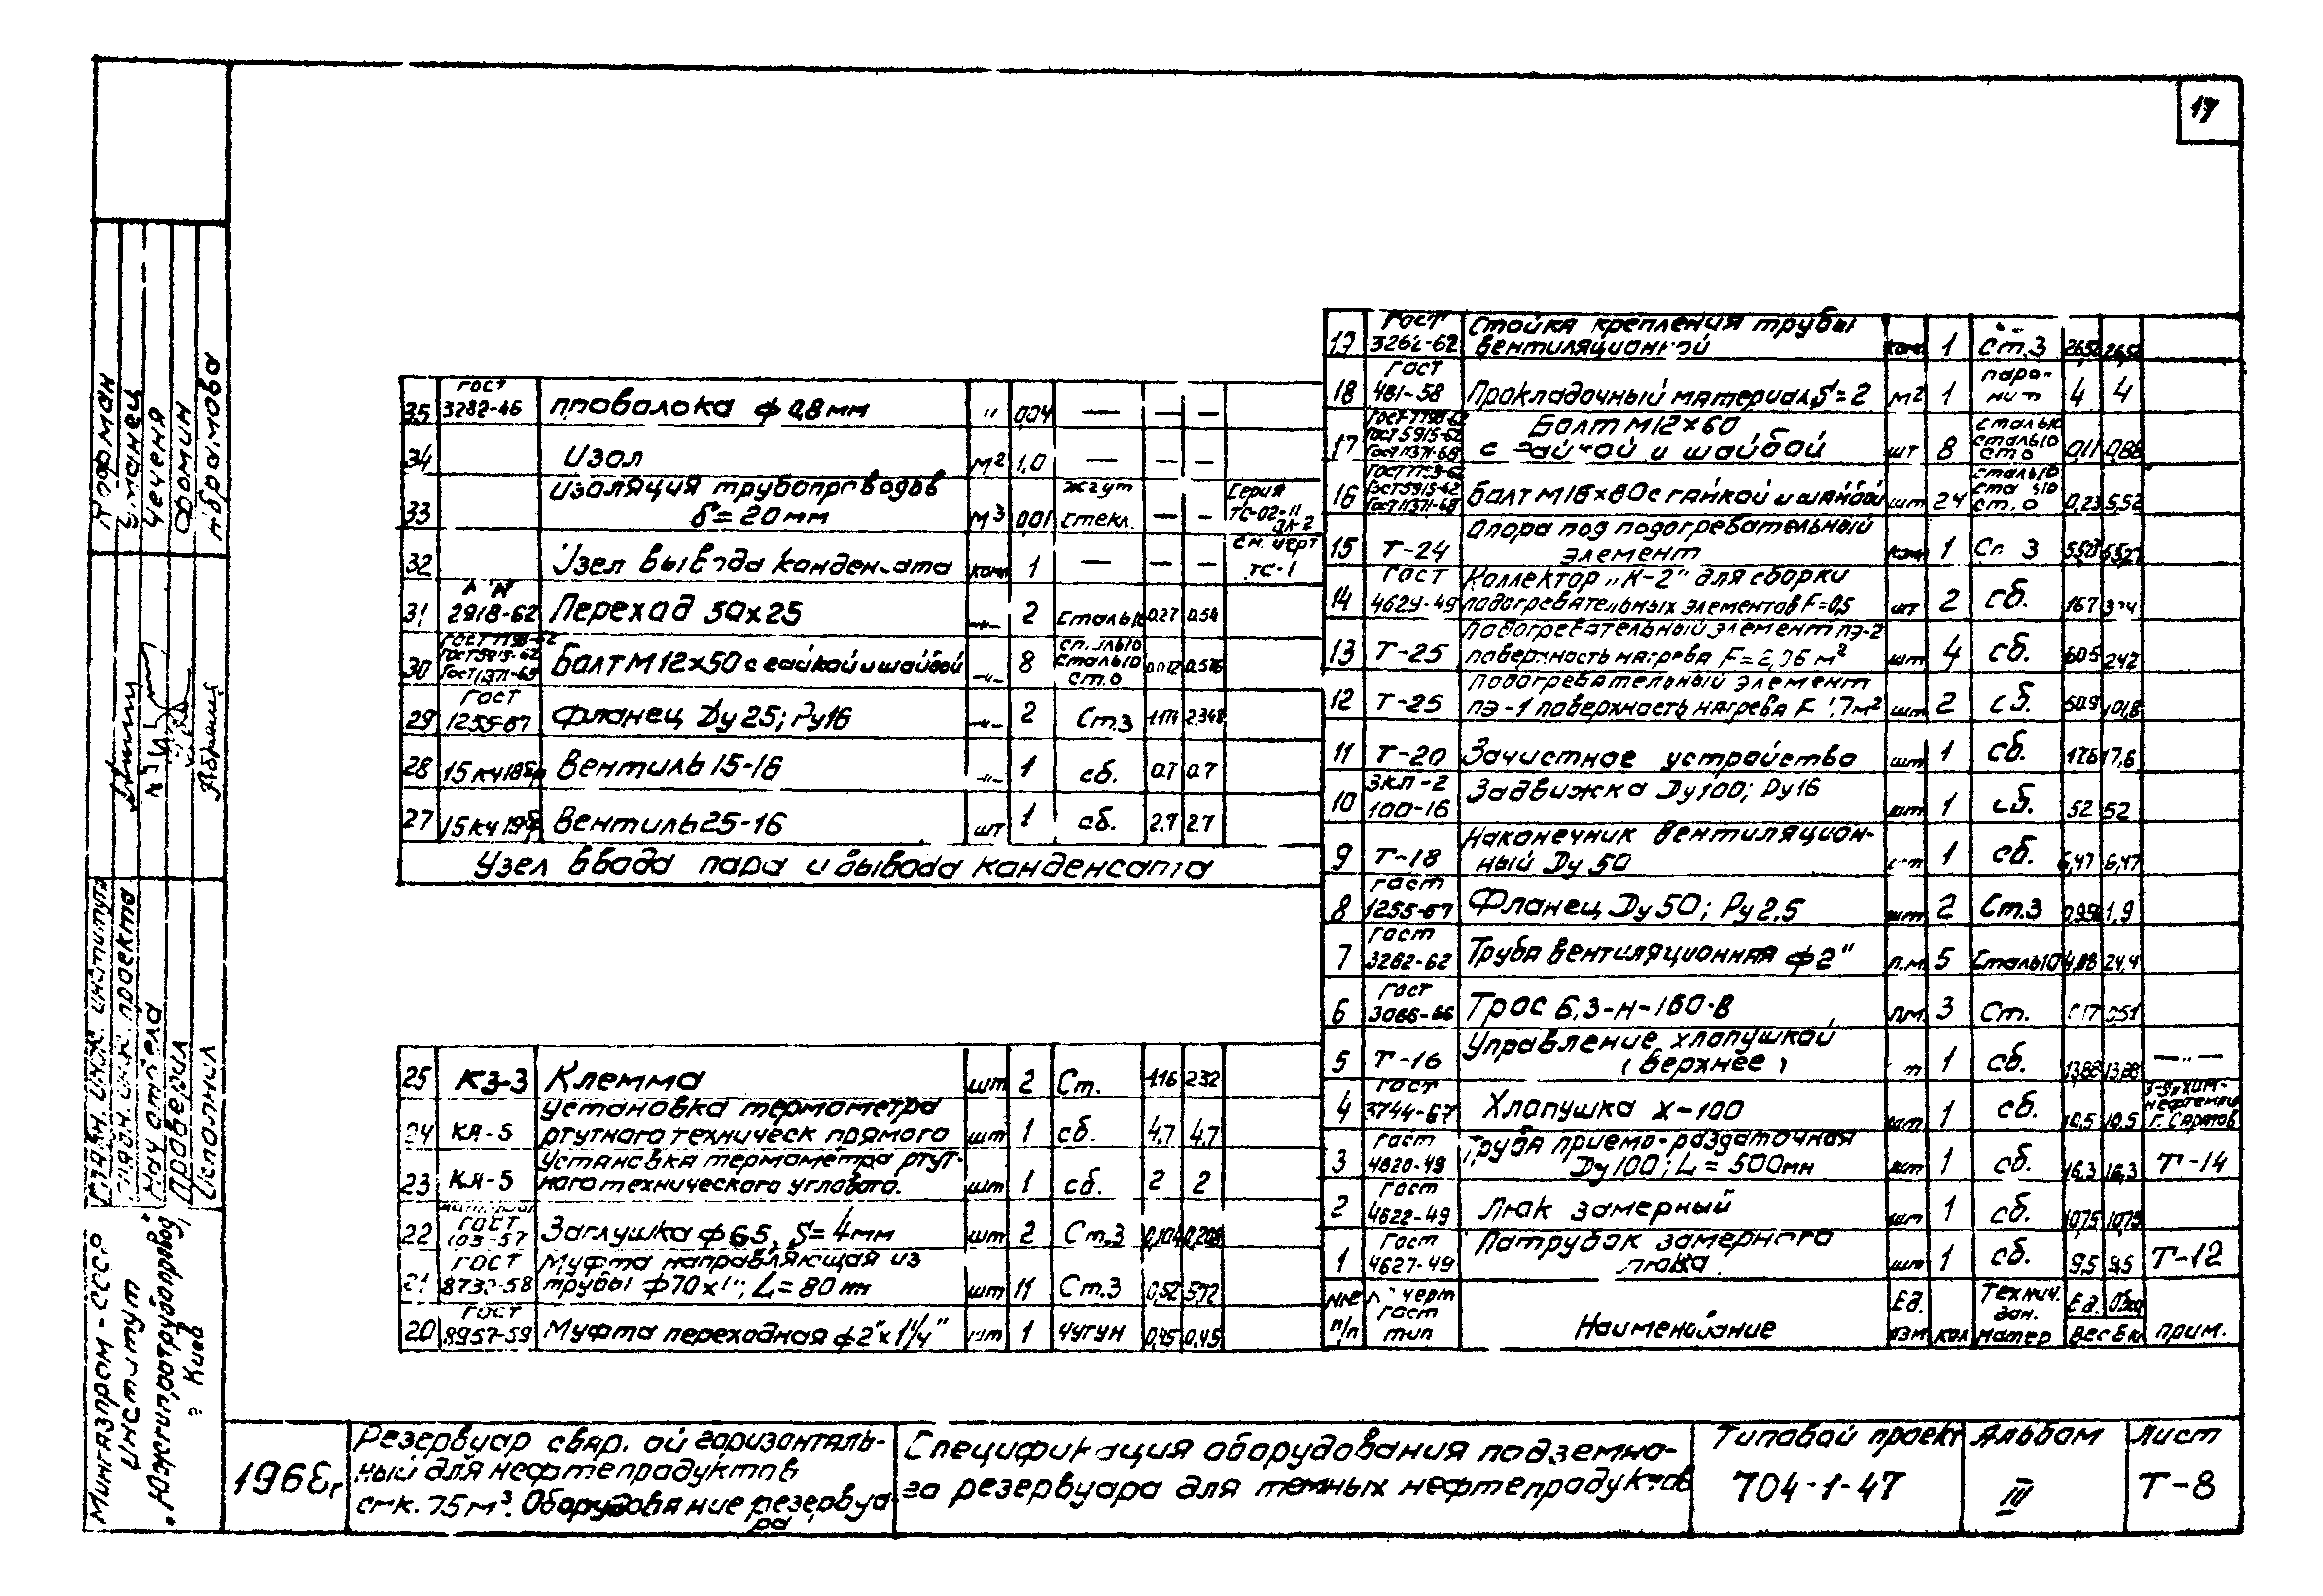 17
35 ГОСТ 3282-46 проволока ф 0,8мм " 0,04 — — —
34 Изол м² 1,0 — — —
33 изоляция трубопроводов δ=20мм м³ 0,01 жгут стекл. — — Серия ТС-02-11
32 Узел вывода конденсата комп 1 — — — см. черт ТС-1
31 2918-62 Переход 50х25 -"- 2 Сталь10 0.27 0.54
30 ГОСТ7798-62 ГОСТ5915-62 ГОСТ11371-68 Болт М12х50 с гайкой и шайбой -"- 8 сталь10 сталь10 ст.0 0.072 0.576
29 ГОСТ 1255-67 Фланец Ду25; Ру16 -"- 2 Ст.3 1.174 2.348
28 15кч18бр Вентиль 15-16 -"- 1 сб. 0.7 0.7
27 15кч19бр Вентиль 25-16 шт 1 сб. 2.7 2.7
Узел ввода пара и вывода конденсата
25 КЗ-3 Клемма шт 2 Ст. 1.16 2.32
24 КЯ-5 установка термометра ртутного техническ прямого шт 1 сб. 4,7 4,7
23 КЯ-5 Установка термометра ртутного технического углового. шт 1 сб. 2 2
22 ГОСТ 103-57 Заглушка ф65, S=4мм шт 2 Ст.3 0,104 0,208
21 ГОСТ 8732-58 Муфта направляющая из трубы ф70х1"; L=80мм шт 11 Ст.3 0,52 5,72
20 ГОСТ 8957-59 Муфта переходная ф2"х1¼" шт 1 чугун 0,45 0,45
19 ГОСТ 3262-62 Стойка крепления трубы вентиляционной комп 1 Ст.3
18 ГОСТ 481-58 Прокладочный материал S=2 м² 1 паронит 4 4
17 ГОСТ7798-62 ГОСТ5915-62 ГОСТ11371-68 Болт М12х60 с гайкой и шайбой шт 8 сталь10 сталь10 ст0 0,11 0,88
16 ГОСТ5915-62 ГОСТ11371-68 болт М16х80 с гайкой и шайбой шт 24 сталь10 ст.0 0,23 5,52
15 Т-24 Опора под подогревательный элемент комп 1 Ст. 3
14 ГОСТ 4629-49 Коллектор „К-2" для сборки подогревательных элементов F=0,5 шт 2 сб. 167 334
13 Т-25 Подогревательный элемент пэ-2 поверхность нагрева F=2,06 м² шт 4 сб. 60.5 242
12 Т-25 Подогревательный элемент пэ-1 поверхность нагрева F 1,7м² шт 2 сб. 50.9 101,8
11 Т-20 Зачистное устройство шт 1 сб. 17.6 17,6
10 ЗКЛ-2 100-16 Задвижка Ду100; Ру16 шт 1 сб. 52 52
9 Т-18 Наконечник вентиляционный Ду 50 шт 1 сб. 6,47 6,47
8 ГОСТ 1255-67 Фланец Ду50; Ру2.5 шт 2 Ст.3 0,95 1,9
7 ГОСТ 3262-62 Труба вентиляционная ф2" п.м. 5 Сталь10 4,88 24,4
6 ГОСТ 3066-66 Трос 6,3-н-160-В п.м. 3 Ст. 0,17 0,51
5 Т-16 Управление хлопушкой (верхнее) шт 1 сб. 13,88 13,88 —"—
4 ГОСТ 3744-67 Хлопушка Х-100 шт 1 сб. 10,5 10,5 г. Саратов
3 ГОСТ 4820-49 Труба приемо-раздаточная Ду100; L=500мм шт 1 сб. 16.3 16,3 Т-14
2 ГОСТ 4622-49 Люк замерный шт 1 сб. 10,75 10,75
1 ГОСТ 4627-49 Патрубок замерного люка. шт 1 сб. 9.5 9,5 Т-12
№№ п/п № черт ГОСТ тип Наименование Ед. изм кол Технич. дан. матер Ед. Общ Вес в кг прим.
1968г
Резервуар свар. ой горизонталь-
ный для нефтепродуктов
емк. 75м³. Оборудование резервуа-
ра
Спецификация оборудования подземно-
го резервуара для темных нефтепродуктов
Типовой проект
704-1-47
Альбом
III
Лист
Т-8
Абрамова
Фомин
Проверил
Исполнил
Мингазпром - СССР
Институт
„Южгипронефтепровод"
г Киев